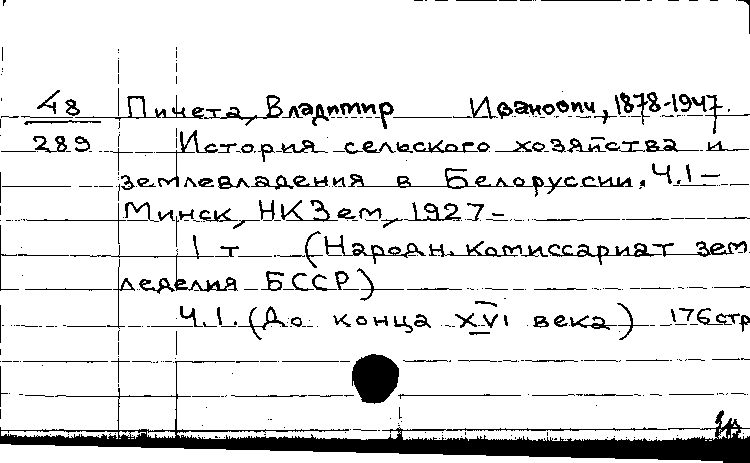 48 Пичета, Владимир Иванович, 1878-1947.
289 История сельского хозяйства и
землевладения в Белоруссии. Ч.1-
Минск, НКЗем, 1927-
1 т (Народн. комиссариат зем
леделия БССР)
Ч.1. (До конца XVI века) 176 стр